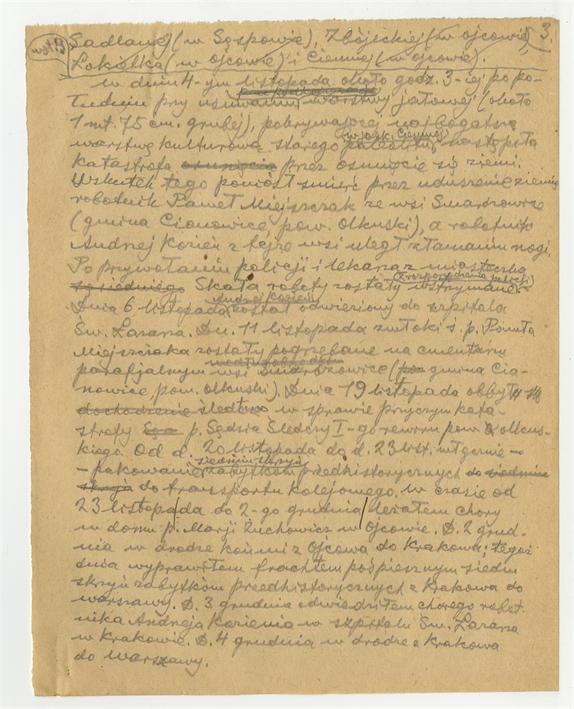 3.
wst. B
Sadlanej (w Sąspowie), Zbójeckiej (w Ojcowie)
Łokietka (w Ojcowie) i Ciemnej (w Ojcowie).
W dniu 4-ym listopada około godz. 3-iej popo-
łudniu przy usuwaniu warstwy jałowej (około
1 mt. 75 cm. grubej), pokrywającej najbogatszą
w jask. Ciemnej
warstwę kulturową starego paleolitu, nastąpiła
katastrofa przez osunięcie się ziemi.
Wskutek tego poniósł śmierć przez uduszenie ziemią
robotnik Paweł Miejszczak ze wsi Smardzowice
(gmina Cianowice pow. olkuski), a robotnik
Andrzej Kozień z tejże wsi uległ złamaniu nogi.
Po przywołaniu policji i lekarza z miasteczka
z rozporządzenia policji
Skała roboty zostały wstrzymane.
Andrzej Kozień
Dnia 6 listopada został odwieziony do szpitala
Św. Łazarza. Dn. 11 listopada zwłoki ś. p. Pawła
Miejszczaka zostały pogrzebane na cmentarzu
parafjalnym wsi Smardzowice (gmina Cia-
nowice, pow. olkuski). Dnia 19 listopada odbyło się
dochodzenie śledztwo w sprawie przyczyn kata-
strofy p. Sędzia Śledczy I-go rewiru pow. olkus-
kiego. Od d. 20 listopada do d. 23 list. włącznie -
siedmiu skrzyń
- pakowanie zabytków przedhistorycznych do
do transportu kolejowego. W czasie od
23 listopada do 2-go grudnia leżałem chory
w domu p. Marji Żuchowicz w Ojcowie. D. 2 grud-
nia w drodze końmi z Ojcowa do Krakowa; tegoż
dnia wyprawiłem frachtem pośpiesznym siedm
skrzyń zabytków przedhistorycznych z Krakowa do
Warszawy. D. 3 grudnia odwiedziłem chorego robot-
nika Andrzeja Kozienia w szpitalu Św. Łazarza
w Krakowie. D. 4 grudnia w drodze z Krakowa
do Warszawy.